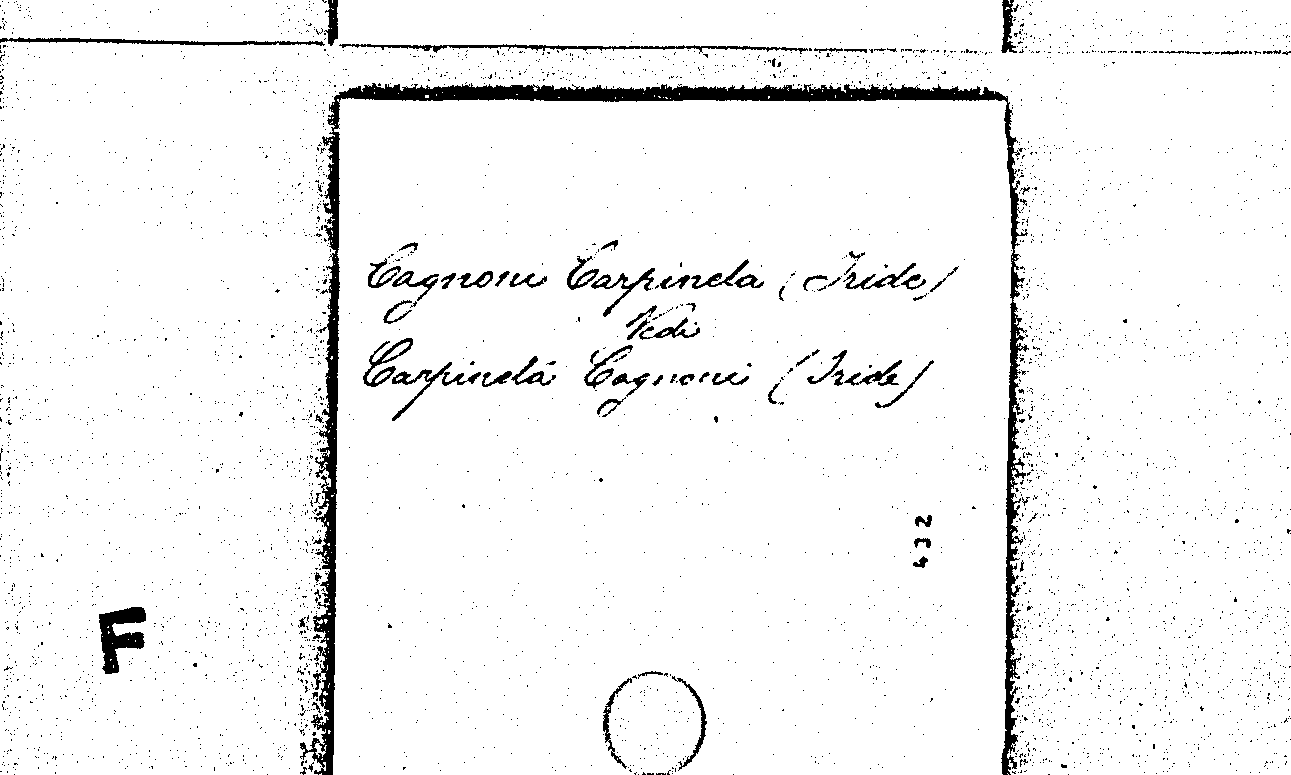 Cagnoni Carpinela (Iride)
Vedi
Carpinelà Cagnoni (Iride)
432
F